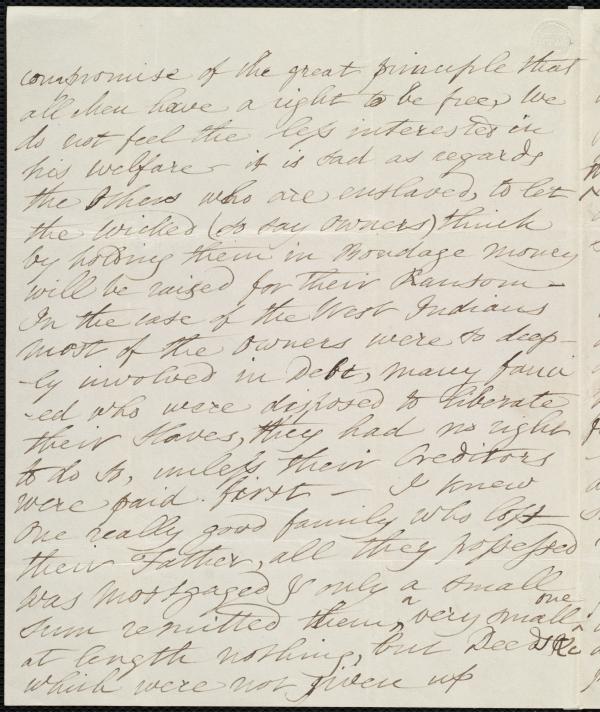 compromise of the great principle that
all Men have a right to be free, We
do not feel the less interested in
his welfare - it is sad as regards
the Others who are enslaved, to let
the Wicked (so say Owners) think
by holding them in Bondage Money
will be raised for their Ransom -
In the case of the West Indians
most of the Owners were so deep-
-ly involved in Debt, many fanci
-ed who were disposed to liberate
their Slaves, they had no right
to do so, unless their Creditors
were paid first - I knew
One really good family who lost
their Father, all they possessed
was Mortgaged & only a small
sum remitted them, a very small one
at length nothing, but Deeds &c
which were not given up